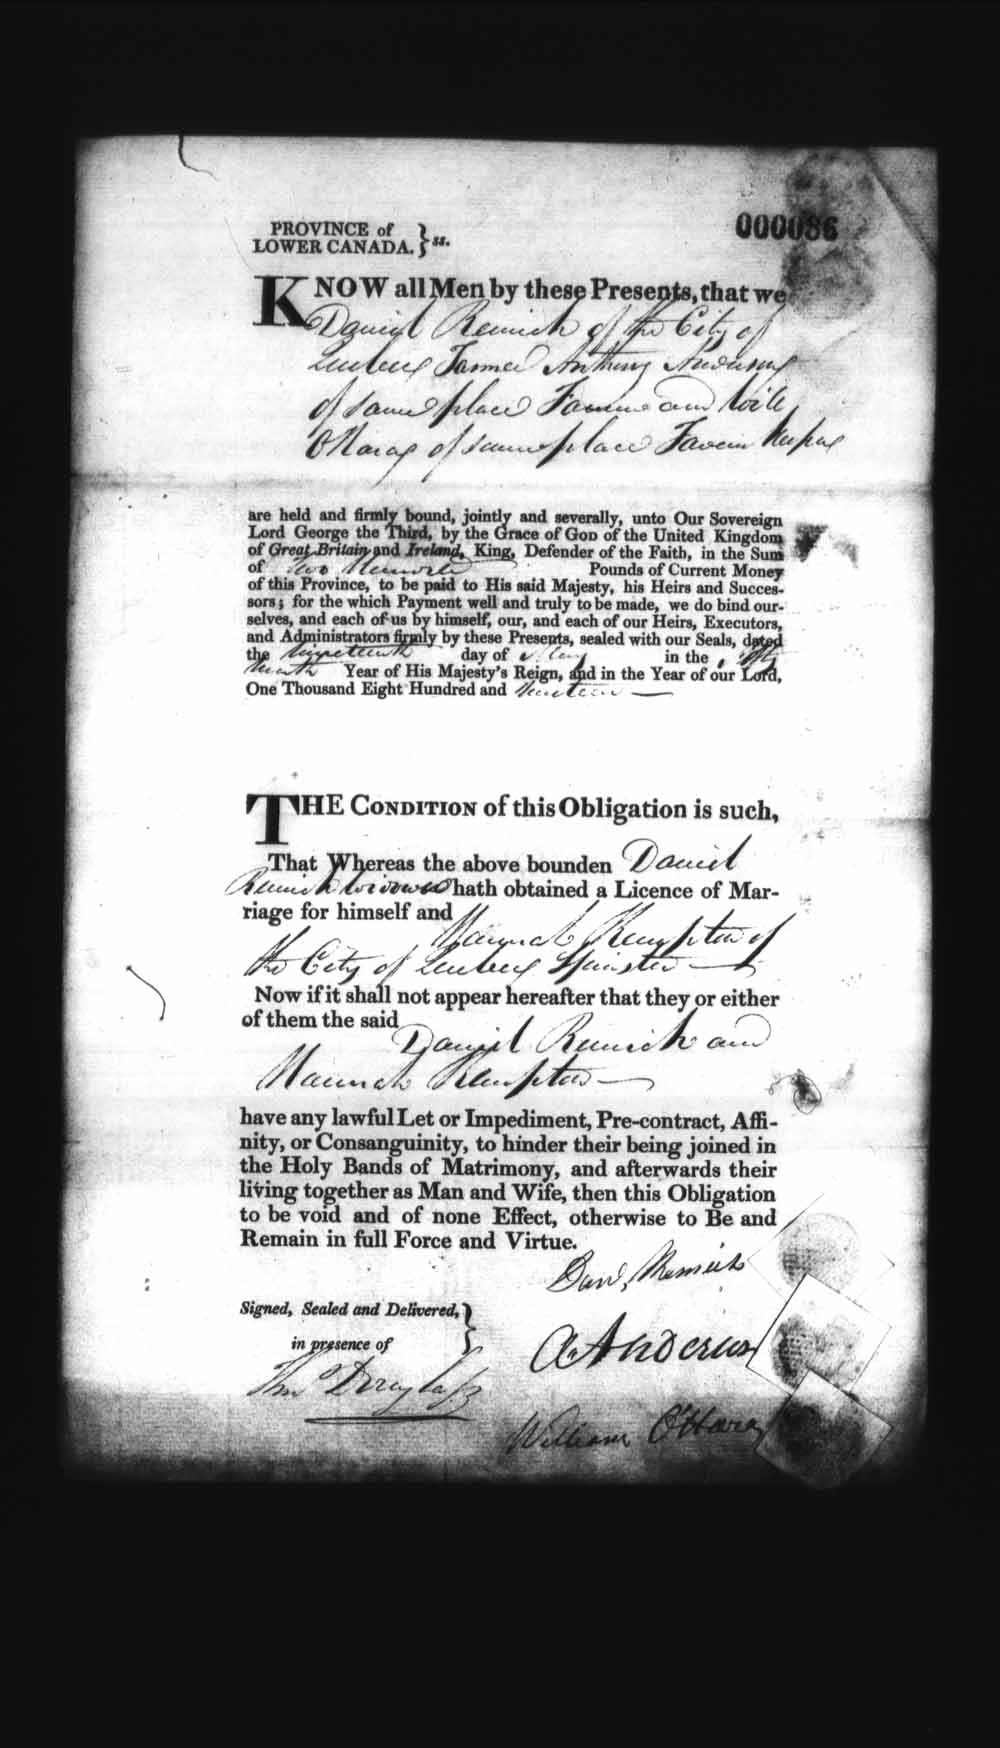 000086
PROVINCE of
LOWER CANADA. } ss.
KNOW all Men by these Presents, that we
Daniel Remick of the City of
Quebec Farmer Anthony Anderson
of same place Farmer and Will
OHara of same place Tavern Keeper
are held and firmly bound, jointly and severally, unto Our Sovereign
Lord George the Third, by the Grace of GOD of the United Kingdom
of Great Britain and Ireland, King, Defender of the Faith, in the Sum
of Two Hundred Pounds of Current Money
of this Province, to be paid to His said Majesty, his Heirs and Succes-
sors; for the which Payment well and truly to be made, we do bind our-
selves, and each of us by himself, our, and each of our Heirs, Executors,
and Administrators firmly by these Presents, sealed with our Seals, dated
the nineteenth day of May in the fifty
ninth Year of His Majesty's Reign, and in the Year of our Lord,
One Thousand Eight Hundred and nineteen
THE CONDITION of this Obligation is such,
That Whereas the above bounden Daniel
Remick widower hath obtained a Licence of Mar-
riage for himself and
Hannah Kempton of
the City of Quebec Spinster
Now if it shall not appear hereafter that they or either
of them the said
Daniel Remick and
Hannah Kempton
have any lawful Let or Impediment, Pre-contract, Affi-
nity, or Consanguinity, to hinder their being joined in
the Holy Bands of Matrimony, and afterwards their
living together as Man and Wife, then this Obligation
to be void and of none Effect, otherwise to Be and
Remain in full Force and Virtue.
Danl Remick
Signed, Sealed and Delivered, }
in presence of
A. Anderson
Thos Douglass
William OHara